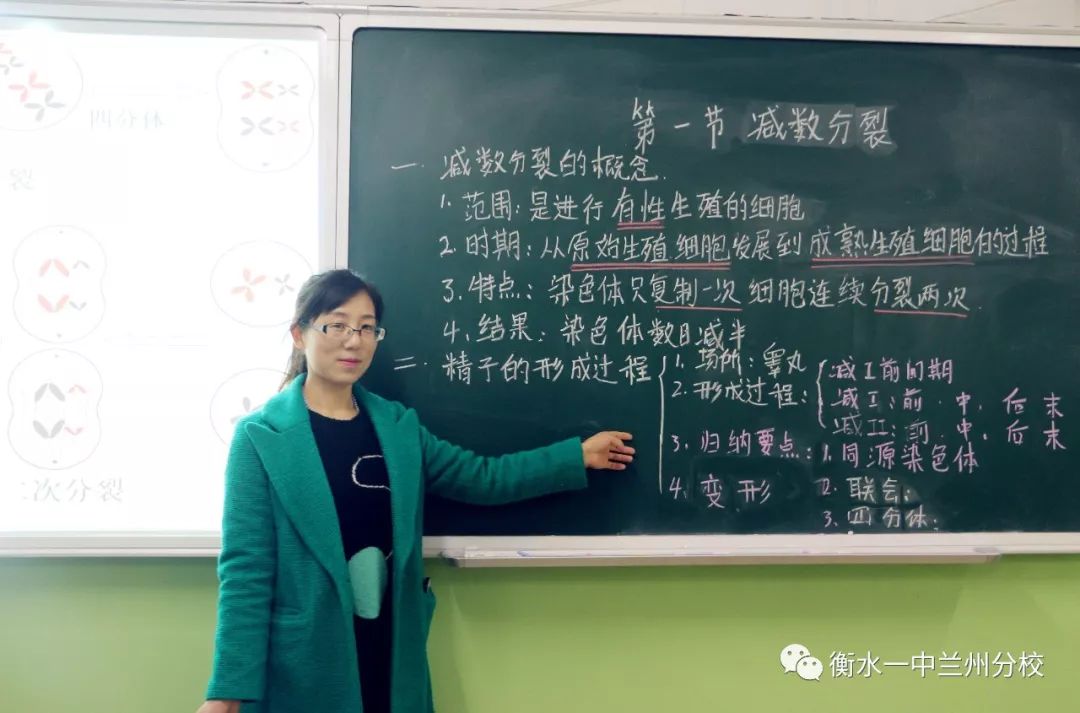 四分体
裂
二次分裂
第一节 减数分裂
一. 减数分裂的概念.
1. 范围: 是进行有性生殖的细胞
2. 时期: 从原始生殖细胞发展到成熟生殖细胞的过程
3. 特点: 染色体只复制一次 细胞连续分裂两次.
4、结果: 染色体数目减半
二. 精子的形成过程
1. 场所: 睾丸
2. 形成过程:
减I前间期
减I: 前. 中. 后 末
减II: 前. 中. 后 末
3. 归纳要点:
1. 同源染色体
2. 联会:
3. 四分体:
4. 变形
衡水一中兰州分校